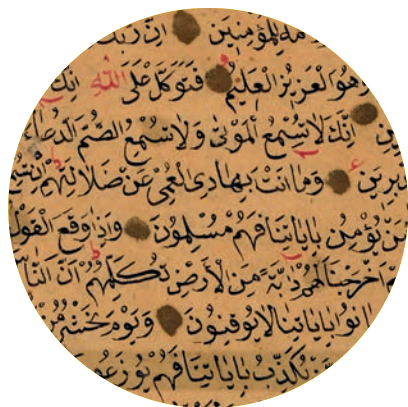 للمؤمنين ان ربك
وهو العزيز العليم فتوكل على الله انك
انك لا تسمع الموتى ولا تسمع الصم الدعاء
وما انت بهادى العمى عن ضلالتهم ان تسمع
من يؤمن باياتنا فهم مسلمون واذا وقع القول
اخرجنا لهم دابة من الارض تكلمهم ان الناس
كانوا باياتنا لا يوقنون ويوم نحشر من
يكذب باياتنا فهم يوزعون